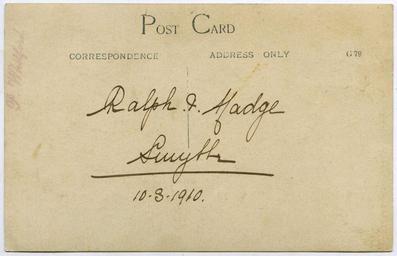 POST CARD
CORRESPONDENCE ADDRESS ONLY G 79
Ralph & Madge
Smythe
10-3-1910.